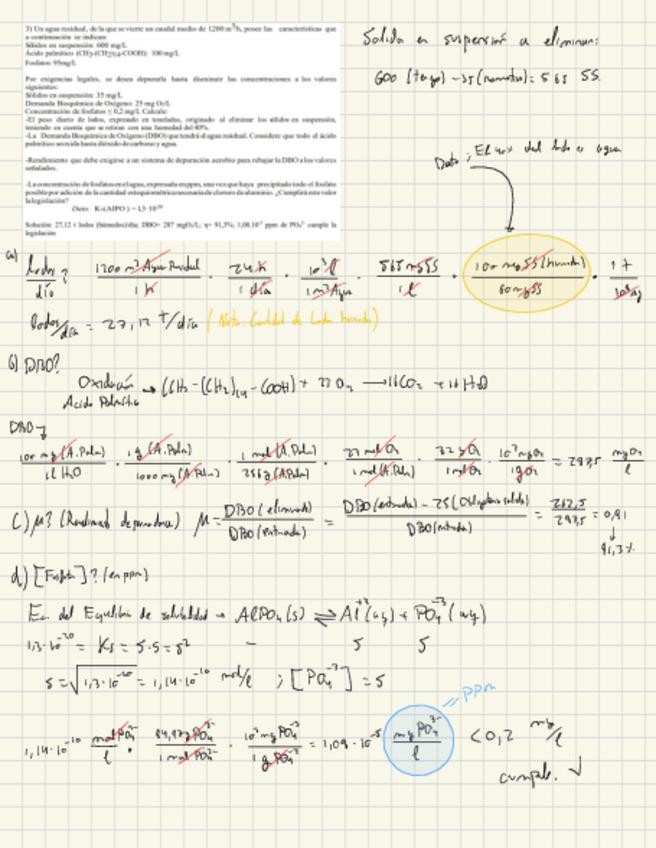 3) Un agua residual, de la que se vierte un caudal medio de 1200 m³/h, posee las características que
a continuación se indican:
Sólidos en suspensión: 600 mg/L
Ácido palmítico (CH₃-(CH₂)₁₄-COOH): 100 mg/L
Fosfatos: 95mg/L
Por exigencias legales, se desea depurarla hasta disminuir las concentraciones a los valores
siguientes:
Sólidos en suspensión: 35 mg/L
Demanda Bioquímica de Oxígeno: 25 mg O₂/L
Concentración de fosfatos ≤ 0,2 mg/L Calcule:
-El peso diario de lodos, expresado en toneladas, originado al eliminar los sólidos en suspensión,
teniendo en cuenta que se retiran con una humedad del 40%.
-La Demanda Bioquímica de Oxígeno (DBO) que tendrá el agua residual. Considere que todo el ácido
palmítico se oxida hasta dióxido de carbono y agua.
-Rendimiento que debe exigirse a un sistema de depuración aerobio para rebajar la DBO a los valores
señalados.
-La concentración de fosfatos en el agua, expresada en ppm, una vez que haya precipitado todo el fosfato
posible por adición de la cantidad estequiométrica necesaria de cloruro de aluminio. ¿Cumplirá este valor
la legislación?
Dato: Ks(AlPO₄) = 1,3·10⁻²⁰
Solución: 27,12 t lodos (húmedos)/día; DBO= 287 mgO₂/L; η= 91,3%; 1,08.10⁻⁵ ppm de PO₄³⁻ cumple la
legislación
Solido en suspensión a eliminar:
600 (tengo) - 35 (normativa) = 565 SS.
Dato: El 40% del lodo es agua
a) Lodos/día? 1200 m³ Agua Residual/1 h · 24 h/1 día · 10³ l/1 m³ Agua · 565 mg SS/1 l · 100 mg SS (humedo)/60 mg SS · 1 t/10⁹ mg
lodos/día = 27,12 t/día (Nota: Cantidad de Lodo humedo)
b) DBO?
Oxidación Acido Palmítico → CH3-(CH2)14-COOH + 23 O2 → 16 CO2 + 16 H2O
DBO →
100 mg (A.Palm)/1 l H2O · 1 g (A.Palm)/1000 mg (A.Palm) · 1 mol (A.Palm)/256 g (A.Palm) · 23 mol O2/1 mol (A.Palm) · 32 g O2/1 mol O2 · 10³ mg O2/1 g O2 = 287,5 mg O2/l
c) μ? (Rendimiento depuradora) μ = DBO (eliminada)/DBO (entrada) = DBO (entrada) - 25 (Obligatorio salida)/DBO (entrada) = 262,5/287,5 = 0,91
↓
91,3%
d) [Fosfato]? (en ppm)
Ec. del Equilibrio de solubilidad → AlPO4 (s) ⇌ Al⁺³ (aq) + PO4⁻³ (aq)
1,3·10⁻²⁰ = Ks = S·S = S² - S S
S = √1,3·10⁻²⁰ = 1,14·10⁻¹⁰ mol/l ; [PO4⁻³] = S
= PPm
1,14·10⁻¹⁰ mol PO4³⁻/l · 94,97 g PO4³⁻/1 mol PO4³⁻ · 10³ mg PO4³⁻/1 g PO4³⁻ = 1,08·10⁻⁵ mg PO4³⁻/l < 0,2 mg/l
cumple. ↓